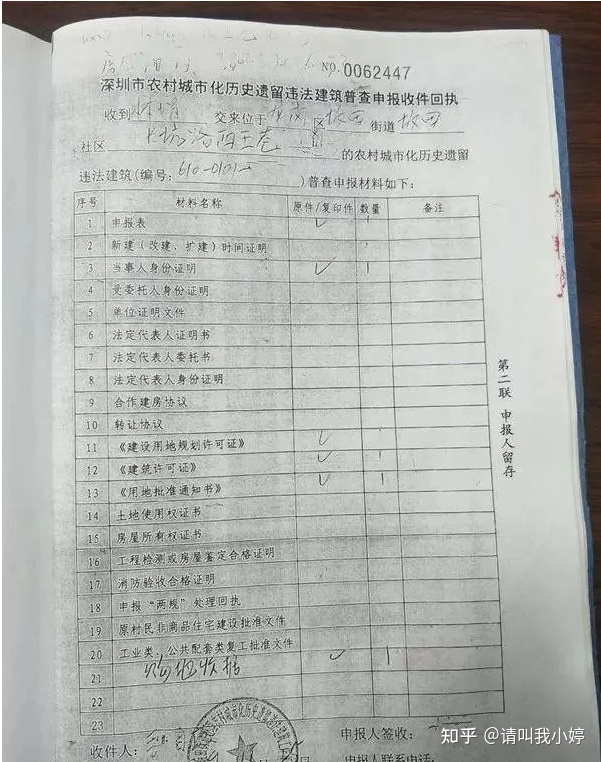 No. 0062447
深圳市农村城市化历史遗留违法建筑普查申报收件回执
收到 交来位于 区 坂田 街道 坂田
社区 的农村城市化历史遗留
违法建筑(编号: 610-0101 )普查申报材料如下:
序号 材料名称 原件/复印件 数量 备注
1 申报表 ✓ 1
2 新建(改建、扩建)时间证明
3 当事人身份证明 ✓ 1
4 受委托人身份证明
5 单位证明文件
6 法定代表人证明书
7 法定代表人委托书
8 法定代表人身份证明
9 合作建房协议
10 转让协议
11 《建设用地规划许可证》 ✓ 1
12 《建筑许可证》 ✓ 1
13 《用地批准通知书》 ✓ 1
14 土地使用权证书
15 房屋所有权证书
16 工程检测或房屋鉴定合格证明
17 消防验收合格证明
18 申报“两规”处理回执
19 原村民非商品住宅建设批准文件
20 工业类、公共配套类复工批准文件
21 收据 ✓ 1
22
23
收件人: 申报人签收:
申报人联系电话:
第二联 申报人留存
知乎 @请叫我小婷